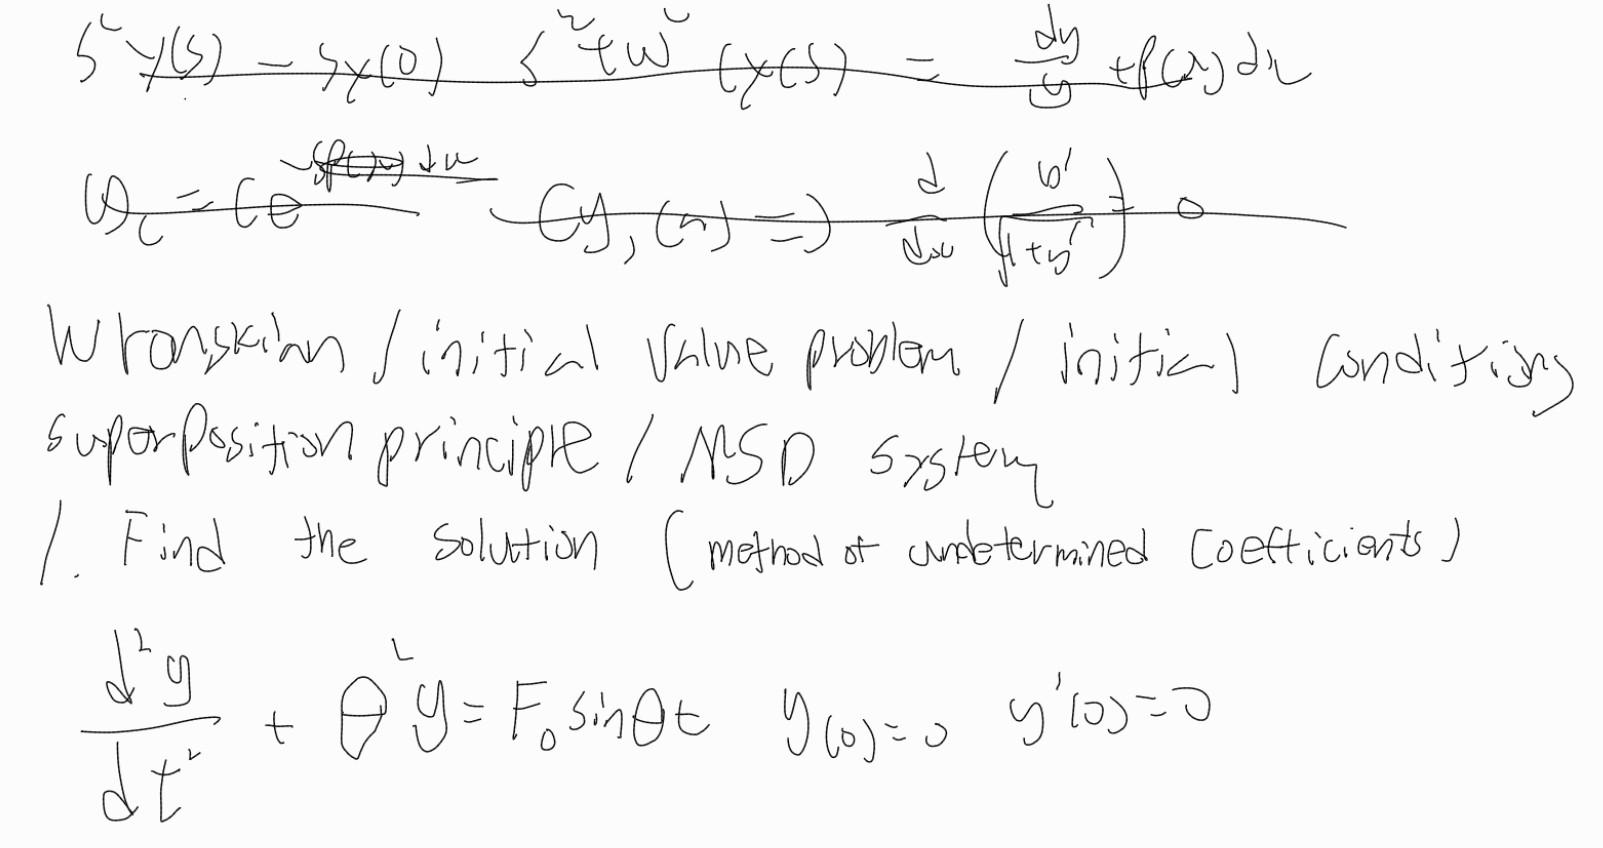 s² y(s) - sy(0) s² + w² (y(s) = dy/y + p(x) dx
= Ce^-∫p(x)dx Cy, (x) => d/dx (y'/√1+y') = 0
Wronskian / initial value problem / initial conditions
superposition principle / MSD system
1. Find the solution (method of undetermined coefficients)
d²y/dt² + θ²y = F₀ sinθt y(0)=0 y'(0)=0